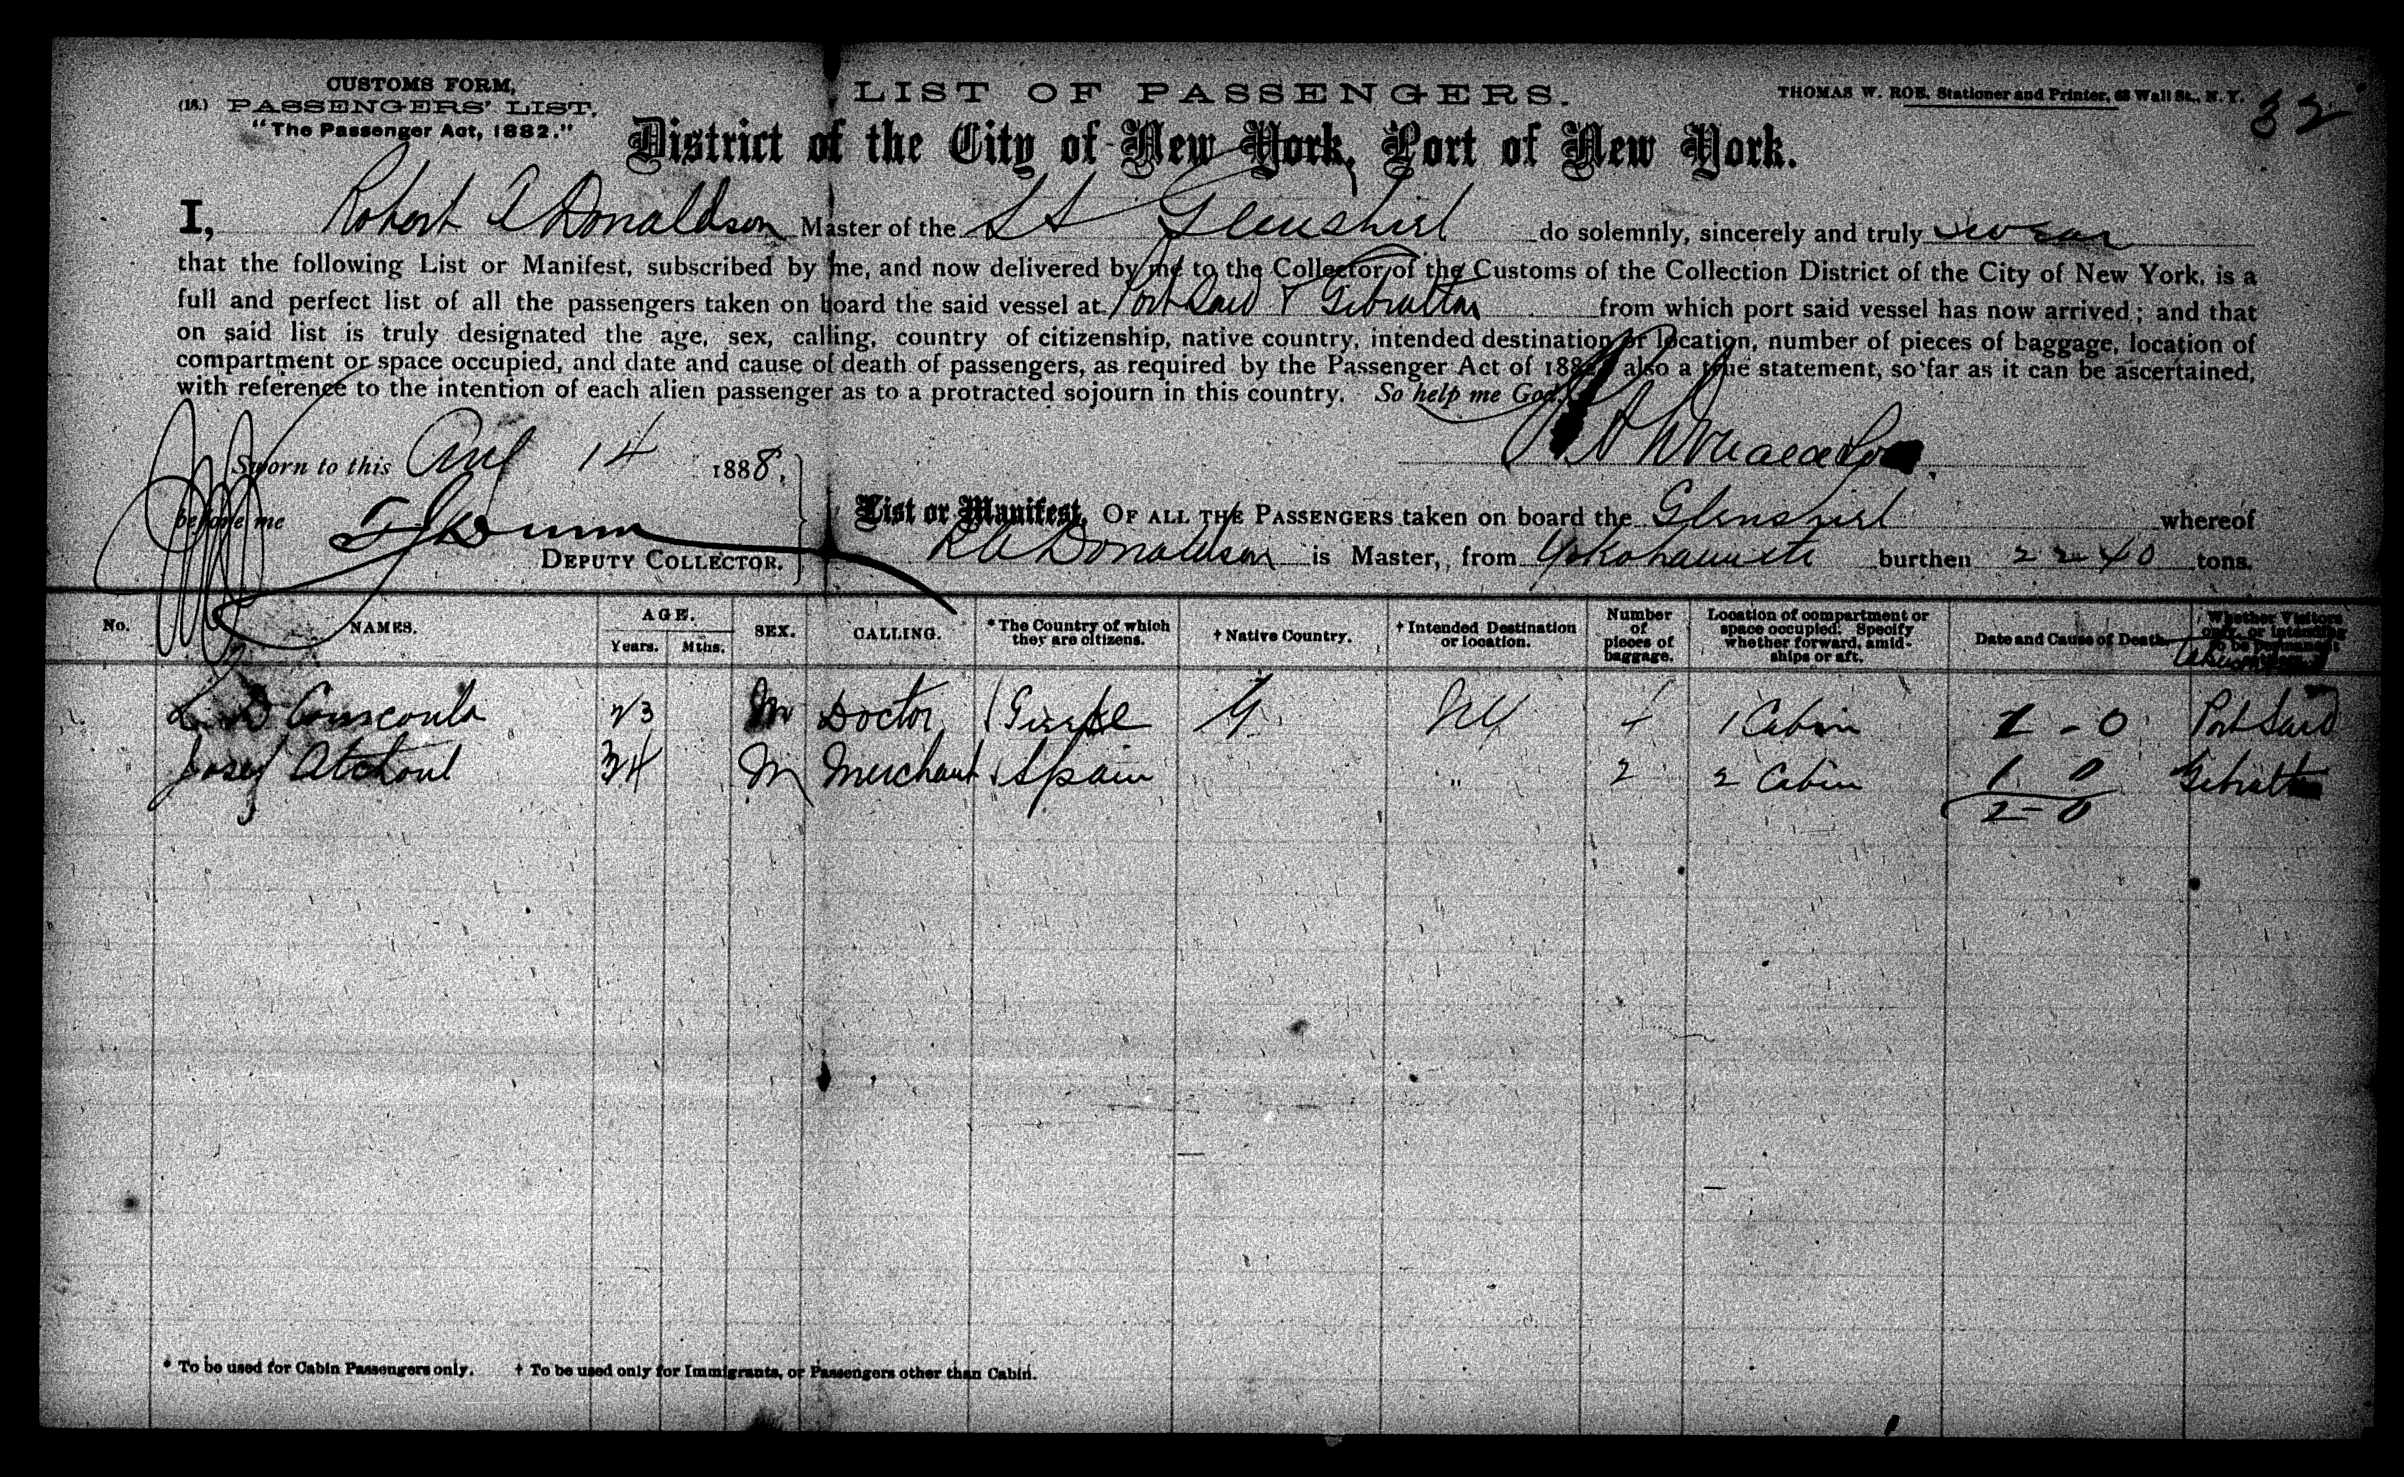 CUSTOMS FORM,
(18.) PASSENGERS' LIST.
"The Passenger Act, 1882."
LIST OF PASSENGERS.
THOMAS W. ROE, Stationer and Printer, Wall St., N. Y.
32
District of the City of New York, Port of New York.
I, Robert A Donaldson Master of the SS Glenshiel do solemnly, sincerely and truly swear
that the following List or Manifest, subscribed by me, and now delivered by me to the Collector of the Customs of the Collection District of the City of New York, is a
full and perfect list of all the passengers taken on board the said vessel at Port Said & Gibraltar from which port said vessel has now arrived; and that
on said list is truly designated the age, sex, calling, country of citizenship, native country, intended destination or location, number of pieces of baggage, location of
compartment or space occupied, and date and cause of death of passengers, as required by the Passenger Act of 1882; also a true statement, so far as it can be ascertained,
with reference to the intention of each alien passenger as to a protracted sojourn in this country. So help me God.
R A Donaldson
Sworn to this Aug 14 1888,
before me
DEPUTY COLLECTOR.
List or Manifest, OF ALL THE PASSENGERS taken on board the Glenshiel whereof
R A Donaldson is Master, from Yokohama etc burthen 2240 tons.
No. NAMES. AGE. Years. Mths. SEX. CALLING. *The Country of which they are citizens. † Native Country. † Intended Destination or location. Number of pieces of baggage. Location of compartment or space occupied. Specify whether forward, amidships or aft. Date and Cause of Death. Whether Visitors only, or intending to be permanent
L. D 23 M Doctor G NY 1 Cabin 1 - 0 Port Said
Josef 34 M Merchant Spain " 2 2 Cabin 1 0
2 - 0
* To be used for Cabin Passengers only. † To be used only for Immigrants, or Passengers other than Cabin.